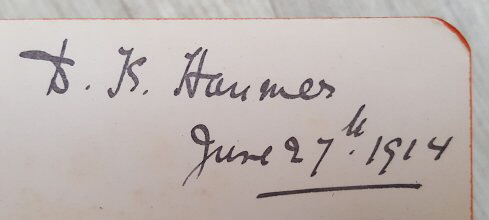 D. K. Hanmer
June 27th. 1914